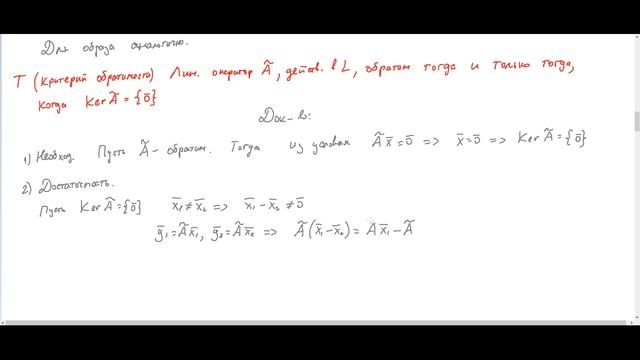 Для образа аналогично.
Т (критерий обратимости) Лин. оператор Ã, действ. в L, обратим тогда и только тогда,
когда Ker Ã = {0̄}
Док-во:
1) Необход. Пусть Ã - обратим. Тогда из условия Ã x̄ = 0̄ => x̄ = 0̄ => Ker Ã = {0̄}
2) Достаточность.
Пусть Ker Ã = {0̄} x̄₁ ≠ x̄₂ => x̄₁ - x̄₂ ≠ 0̄
ȳ₁ = Ã x̄₁, ȳ₂ = Ã x̄₂ => Ã (x̄₁ - x̄₂) = Ã x̄₁ - Ã